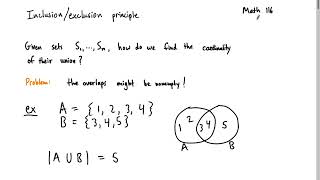 Inclusion/exclusion principle
Math 116
Given sets S₁,...,Sₙ, how do we find the cardinality
of their union?
Problem: the overlaps might be nonempty!
ex
A = {1, 2, 3, 4}
B = {3, 4, 5}
1 2 3 4 5
A B
|A ∪ B| = 5